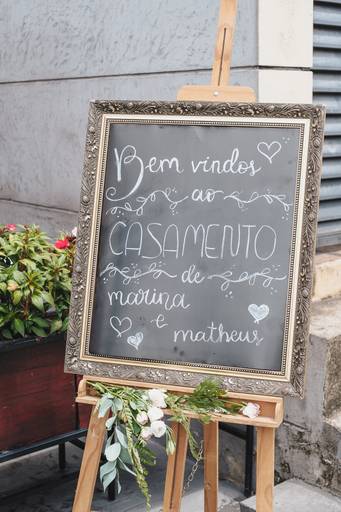 Bem vindos
ao
CASAMENTO
de
marina
e
matheus